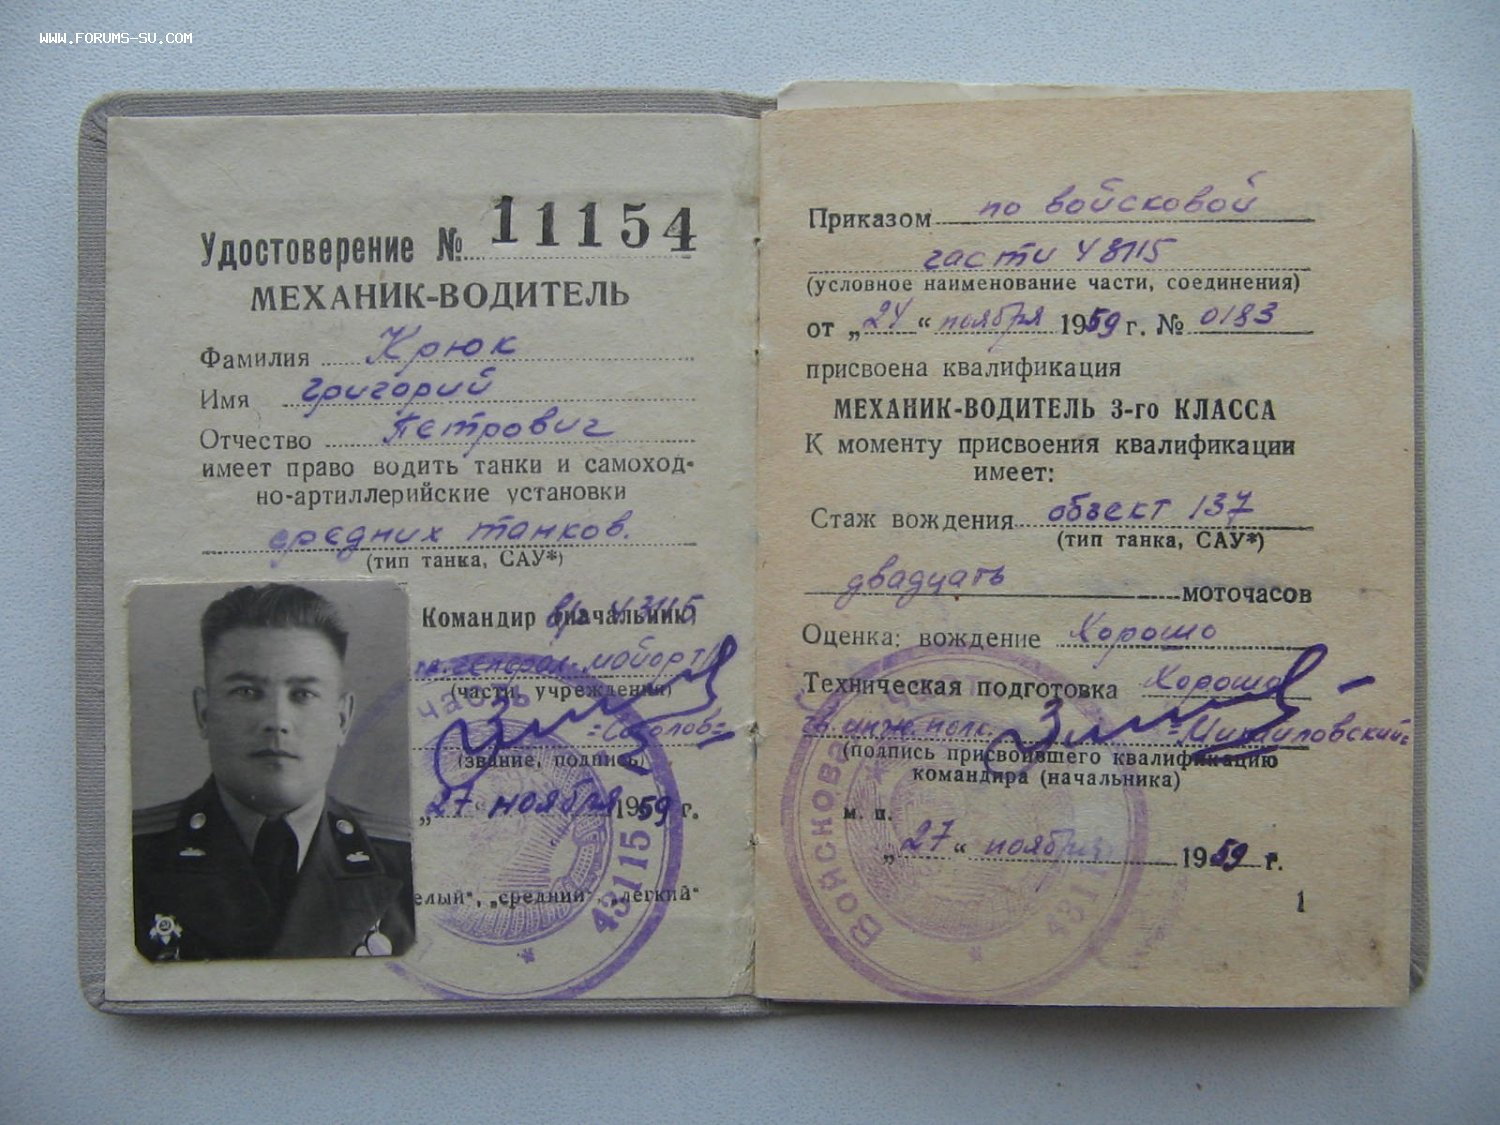 WWW.FORUMS-SU.COM
Удостоверение № 11154
МЕХАНИК-ВОДИТЕЛЬ
Фамилия Крюк
Имя Григорий
Отчество Петрович
имеет право водить танки и самоход-
но-артиллерийские установки
средних танков.
(тип танка, САУ*)
Командир (начальник)
генерал-майор т/
(части, учреждения)
=Соколов=
(звание, подпись)
„27“ ноября 1959 г.
елый“, „средний“, „легкий“
часть
43115
Приказом по войсковой
части
(условное наименование части, соединения)
от „24“ ноября 1959 г. № 0183
присвоена квалификация
МЕХАНИК-ВОДИТЕЛЬ 3-го КЛАССА
К моменту присвоения квалификации
имеет:
Стаж вождения объект 137
(тип танка, САУ*)
двадцать моточасов
Оценка: вождение Хорошо
Техническая подготовка Хорошо
инж. полк. =Михайловский=
(подпись присвоившего квалификацию
командира (начальника)
м. п.
„27“ ноября 1959 г.
Войсковая
1